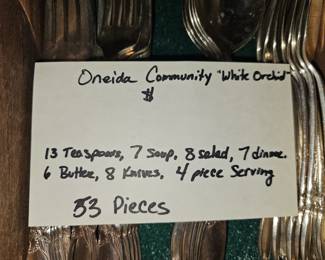 Oneida Community "White Orchid"
$
13 Teaspoons, 7 Soup, 8 salad, 7 dinner.
6 Butter, 8 Knives, 4 piece Serving
53 Pieces